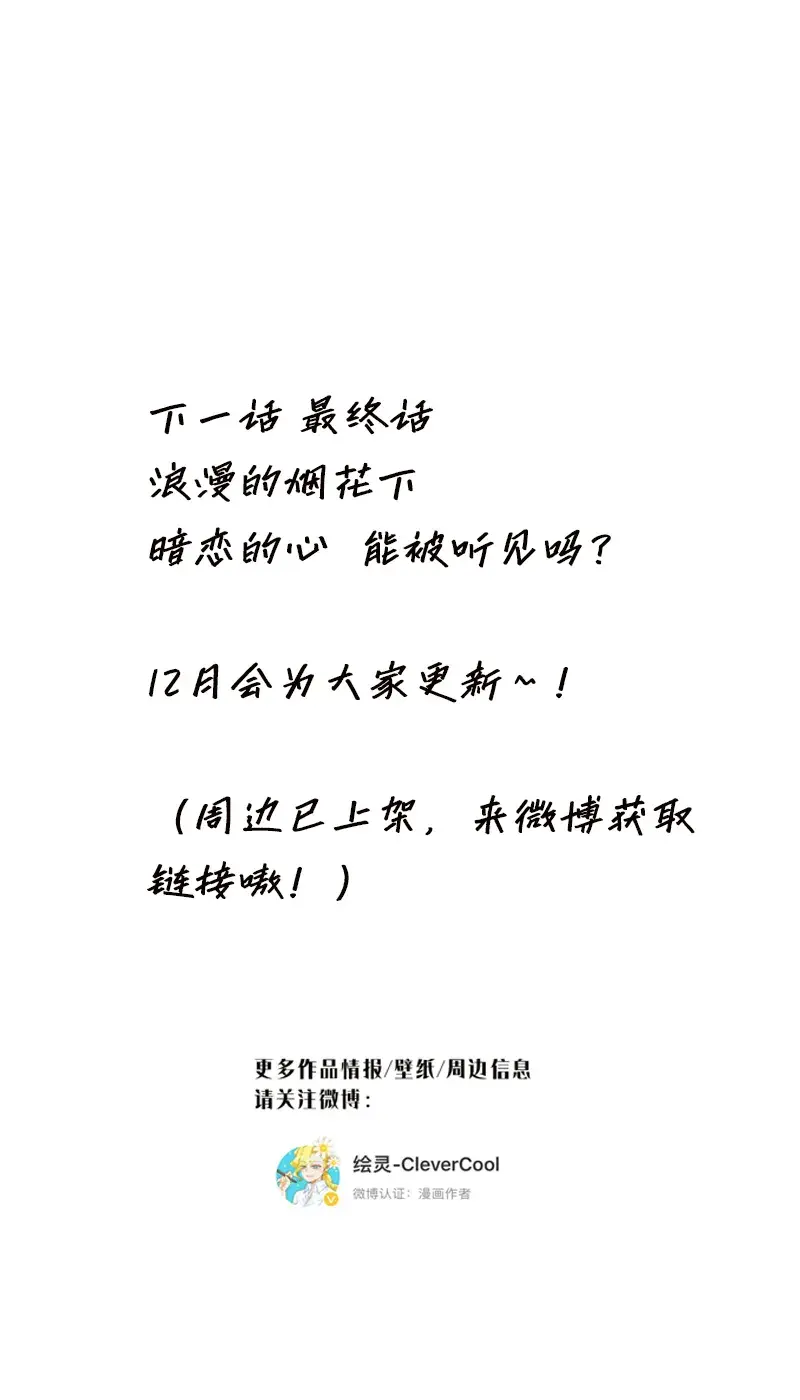 下一话 最终话
浪漫的烟花下
暗恋的心 能被听见吗?
12月会为大家更新~!
(周边已上架, 来微博获取
链接嗷! )
更多作品情报/壁纸/周边信息
请关注微博:
绘灵-CleverCool
微博认证: 漫画作者